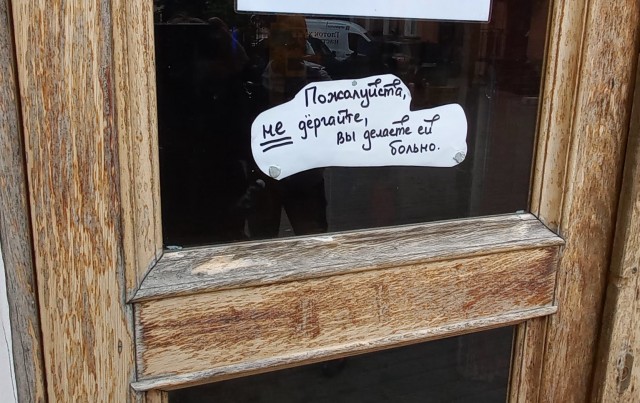 Пожалуйста,
не дёргайте,
вы делаете ей
больно.